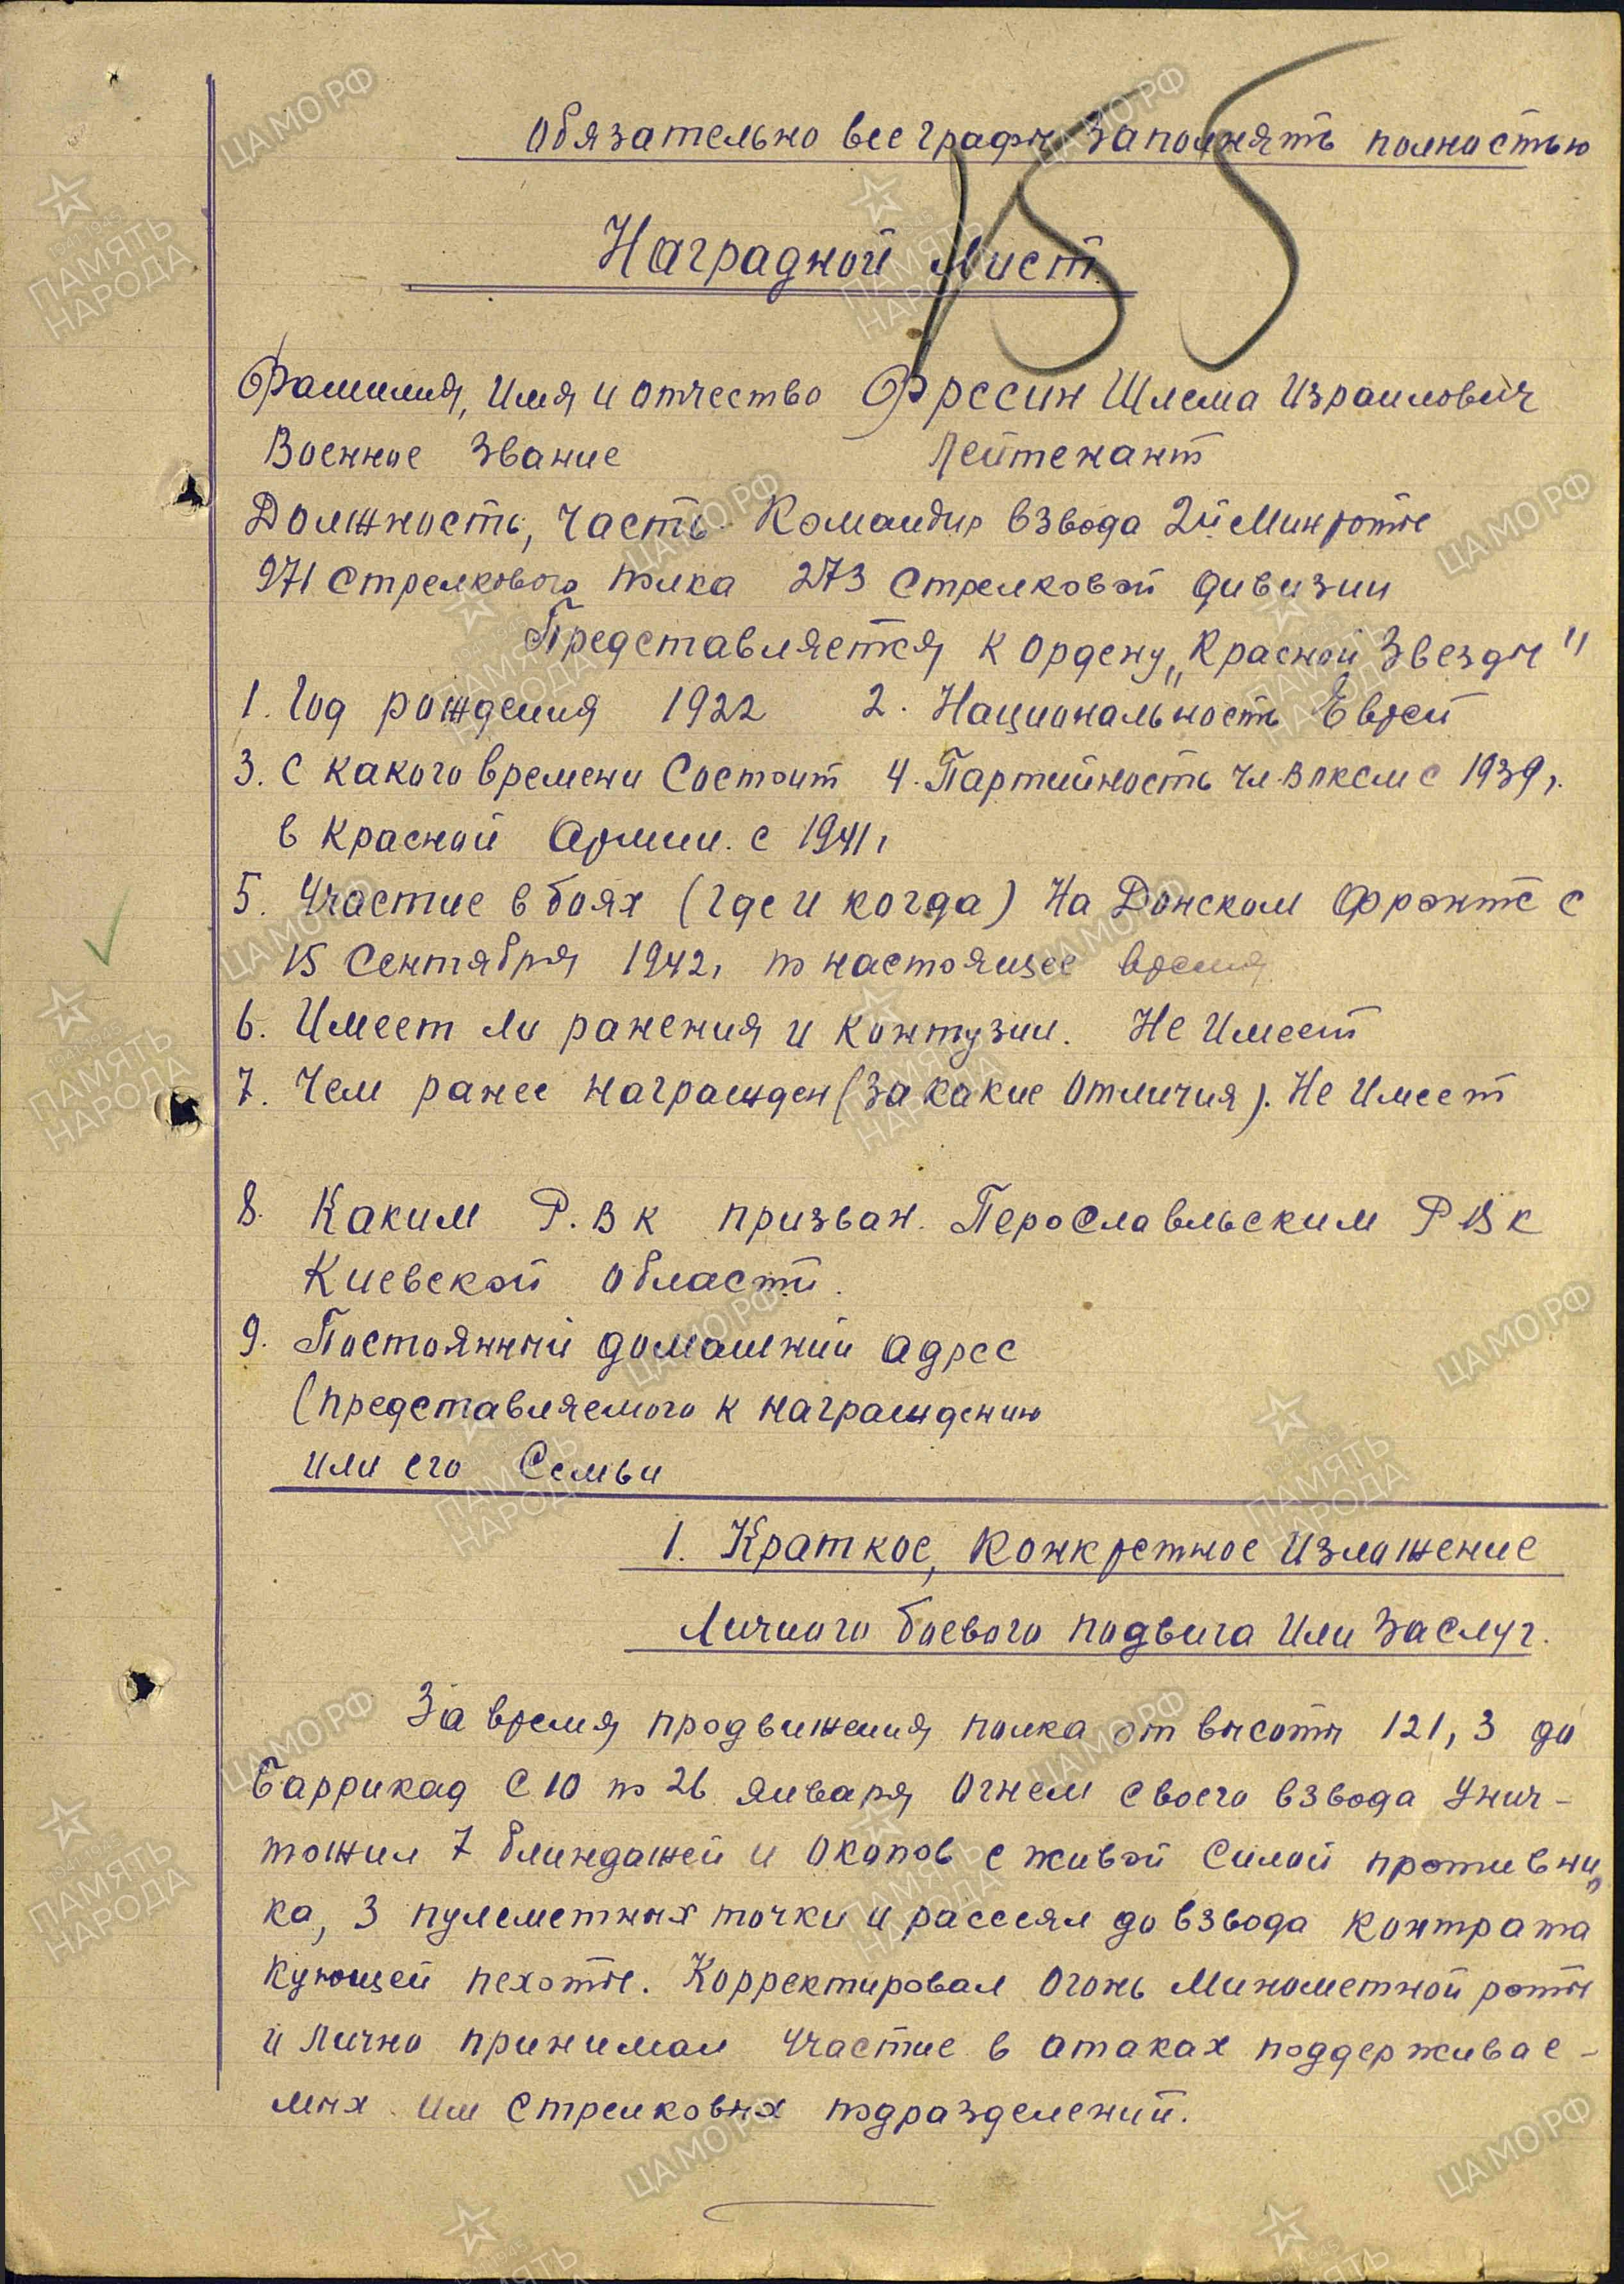 Обязательно все графы заполнять полностью
155
Наградной Лист
Фамилия, Имя и отчество Фресин Шлема Израилович
Военное Звание Лейтенант
Должность, часть Командир взвода 2й Минроты
971 Стрелкового полка 273 Стрелковой дивизии
Представляется к ордену „Красной Звезды"
1. Год рождения 1922 2. Национальность Еврей
3. С какого времени Состоит 4. Партийность чл. ВЛКСМ с 1939г.
в Красной Армии. с 1941г
5. Участие в боях (где и когда) На Донском Фронте с
15 Сентября 1942г по настоящее время
6. Имеет ли ранения и контузии. Не Имеет
7. Чем ранее награжден (за какие отличия). Не Имеет
8. Каким Р.В К призван. Перославльским РВК
Киевской области.
9. Постоянный домашний адрес
(представляемого к награждению
или его Семьи
1. Краткое, Конкретное Изложение
Личного боевого подвига Или Заслуг.
За время продвижения полка от высоты 121,3 до
Баррикад с 10 по 26 января огнем своего взвода Унич-
тожил 7 блиндажей и окопов с живой Силой противни„
ка, 3 пулеметных точки и рассеял до взвода контрата
кующей пехоты. Корректировал огонь Минометной роты
и лично принимал участие в атаках поддерживае-
мых им Стрелковых подразделений.